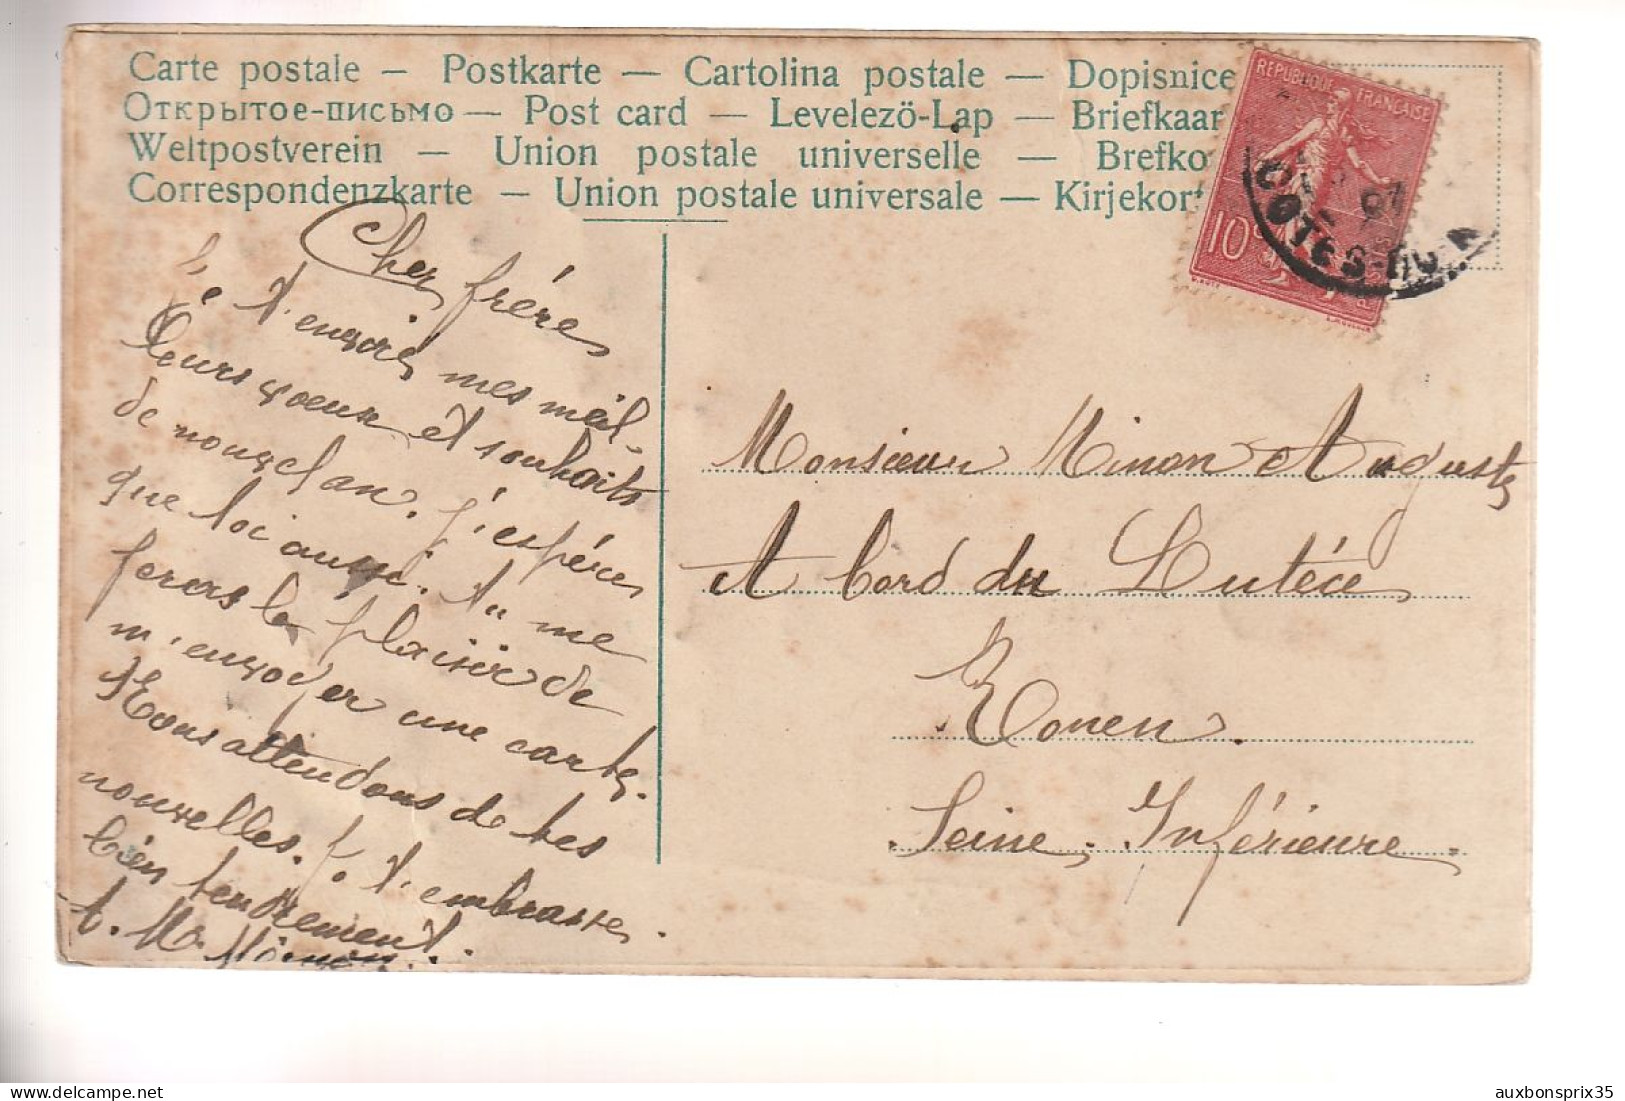 Carte postale — Postkarte — Cartolina postale — Dopisnice
Открытое-письмо — Post card — Levelezö-Lap — Briefkaar
Weltpostverein — Union postale universelle — Brefko
Correspondenzkarte — Union postale universale — Kirjekort
REPUBLIQUE FRANÇAISE
10
07
COTES-DU-N
Cher frère
Je t'envoie mes meil-
leurs voeux et souhaits
de nouvel an. j'espère
que toi aussi. tu me
feras le plaisir de
m'envoyer une carte.
Nous attendons de tes
nouvelles. Je t'embrasse
bien tendrement.
t. M. Minon.
Monsieur Minon Auguste
A bord du Lutéce
Rouen.
Seine. Inférieure.
auxbonsprix35